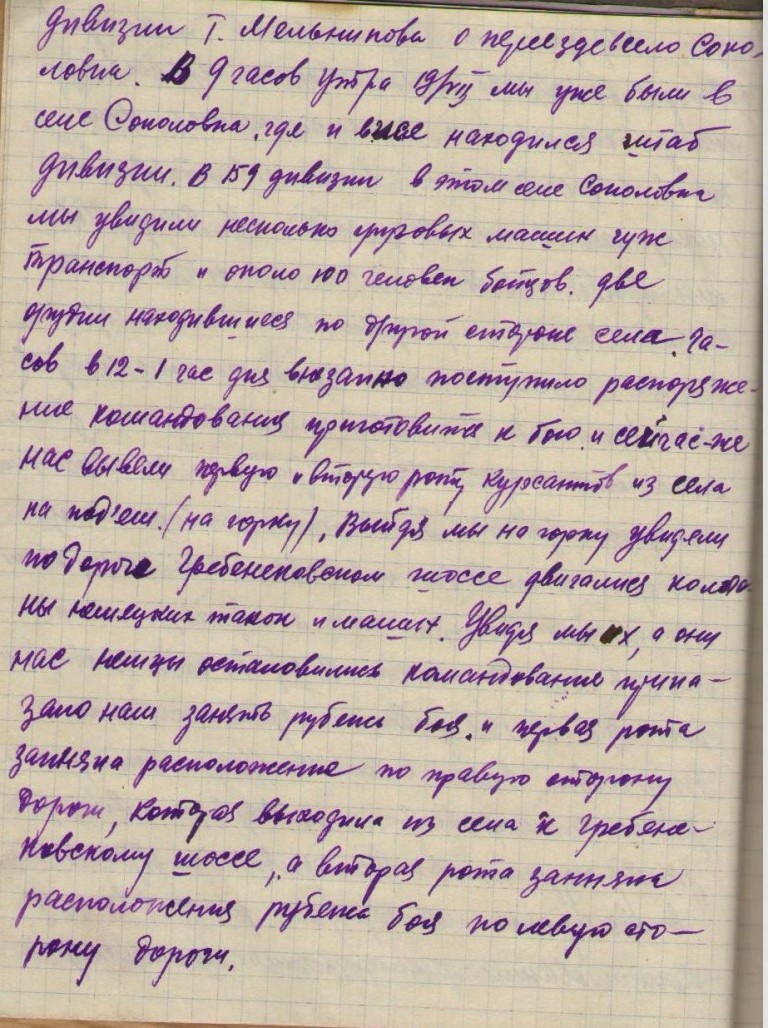 дивизии Т. Мельникова о переезде в село Соко-
ловка. В 9 часов утра мы уже были в
селе Соколовка, где и находился штаб
дивизии. В 159 дивизии в этом селе Соколовка
мы увидили несколько грузовых машин гуж
транспорт и около 100 человек бойцов. две
орудии находившиеся по другой стороне села. ча-
сов в 12-1 час дня внезапно поступило распоряже-
ние командования приготовится к бою и сейчас-же
нас вывели первую и вторую роту курсантов из села
на под'ем. (на горку), Выйдя мы на горку увидели
по дороге Гребенековском шоссе двигались колон-
ны немецких танок и машин. Увидя мы их, а они
нас немцы остановились командование прика-
зало нам занять рубежи боя. и первая рота
заняла расположение по правую сторону
дороги, которая выходила из села к Гребене-
ковскому шоссе, а вторая рота заняла
расположения рубежа боя по левую сто-
рону дороги.